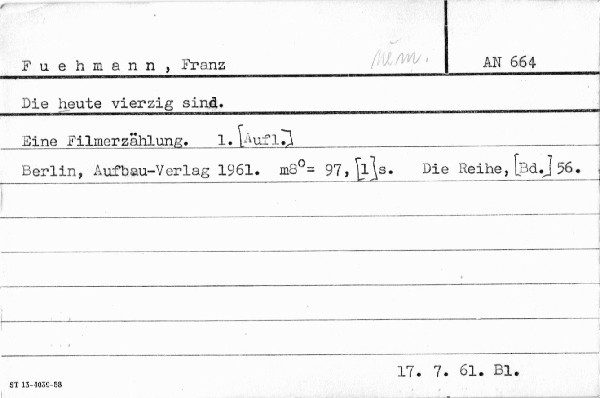 F u e h m a n n , Franz
něm.
AN 664
Die heute vierzig sind.
Eine Filmerzählung. 1. [Aufl.]
Berlin, Aufbau-Verlag 1961. m8°= 97, [1]s. Die Reihe, [Bd.] 56.
17. 7. 61. Bl.
ST 13-4039-58